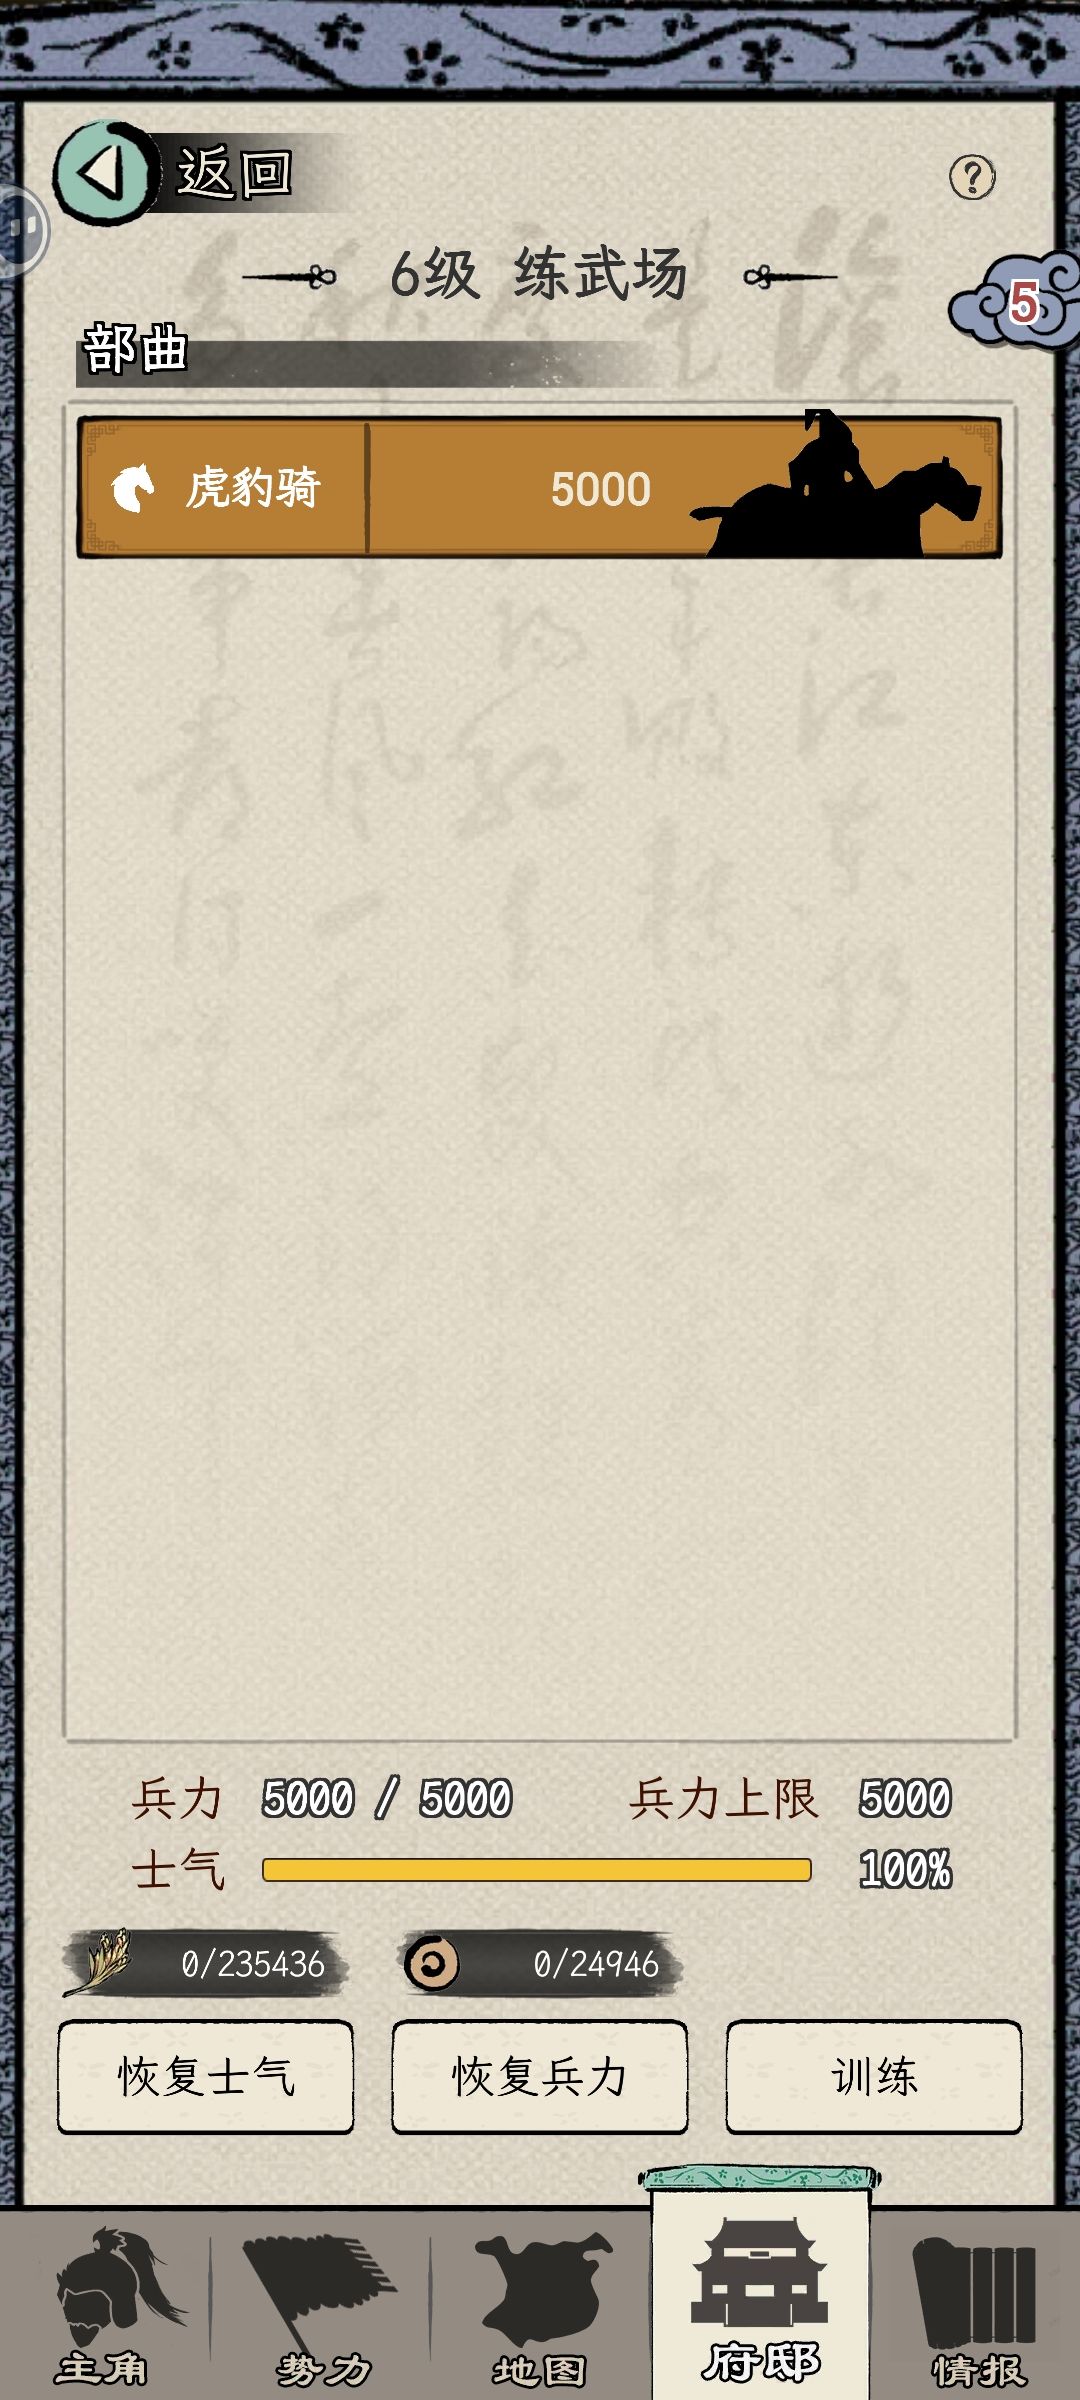 返回
?
6级 练武场
5
部曲
虎豹骑 5000
兵力 5000 / 5000 兵力上限 5000
士气 100%
0/235436 0/24946
恢复士气 恢复兵力 训练
主角 势力 地图 府邸 情报